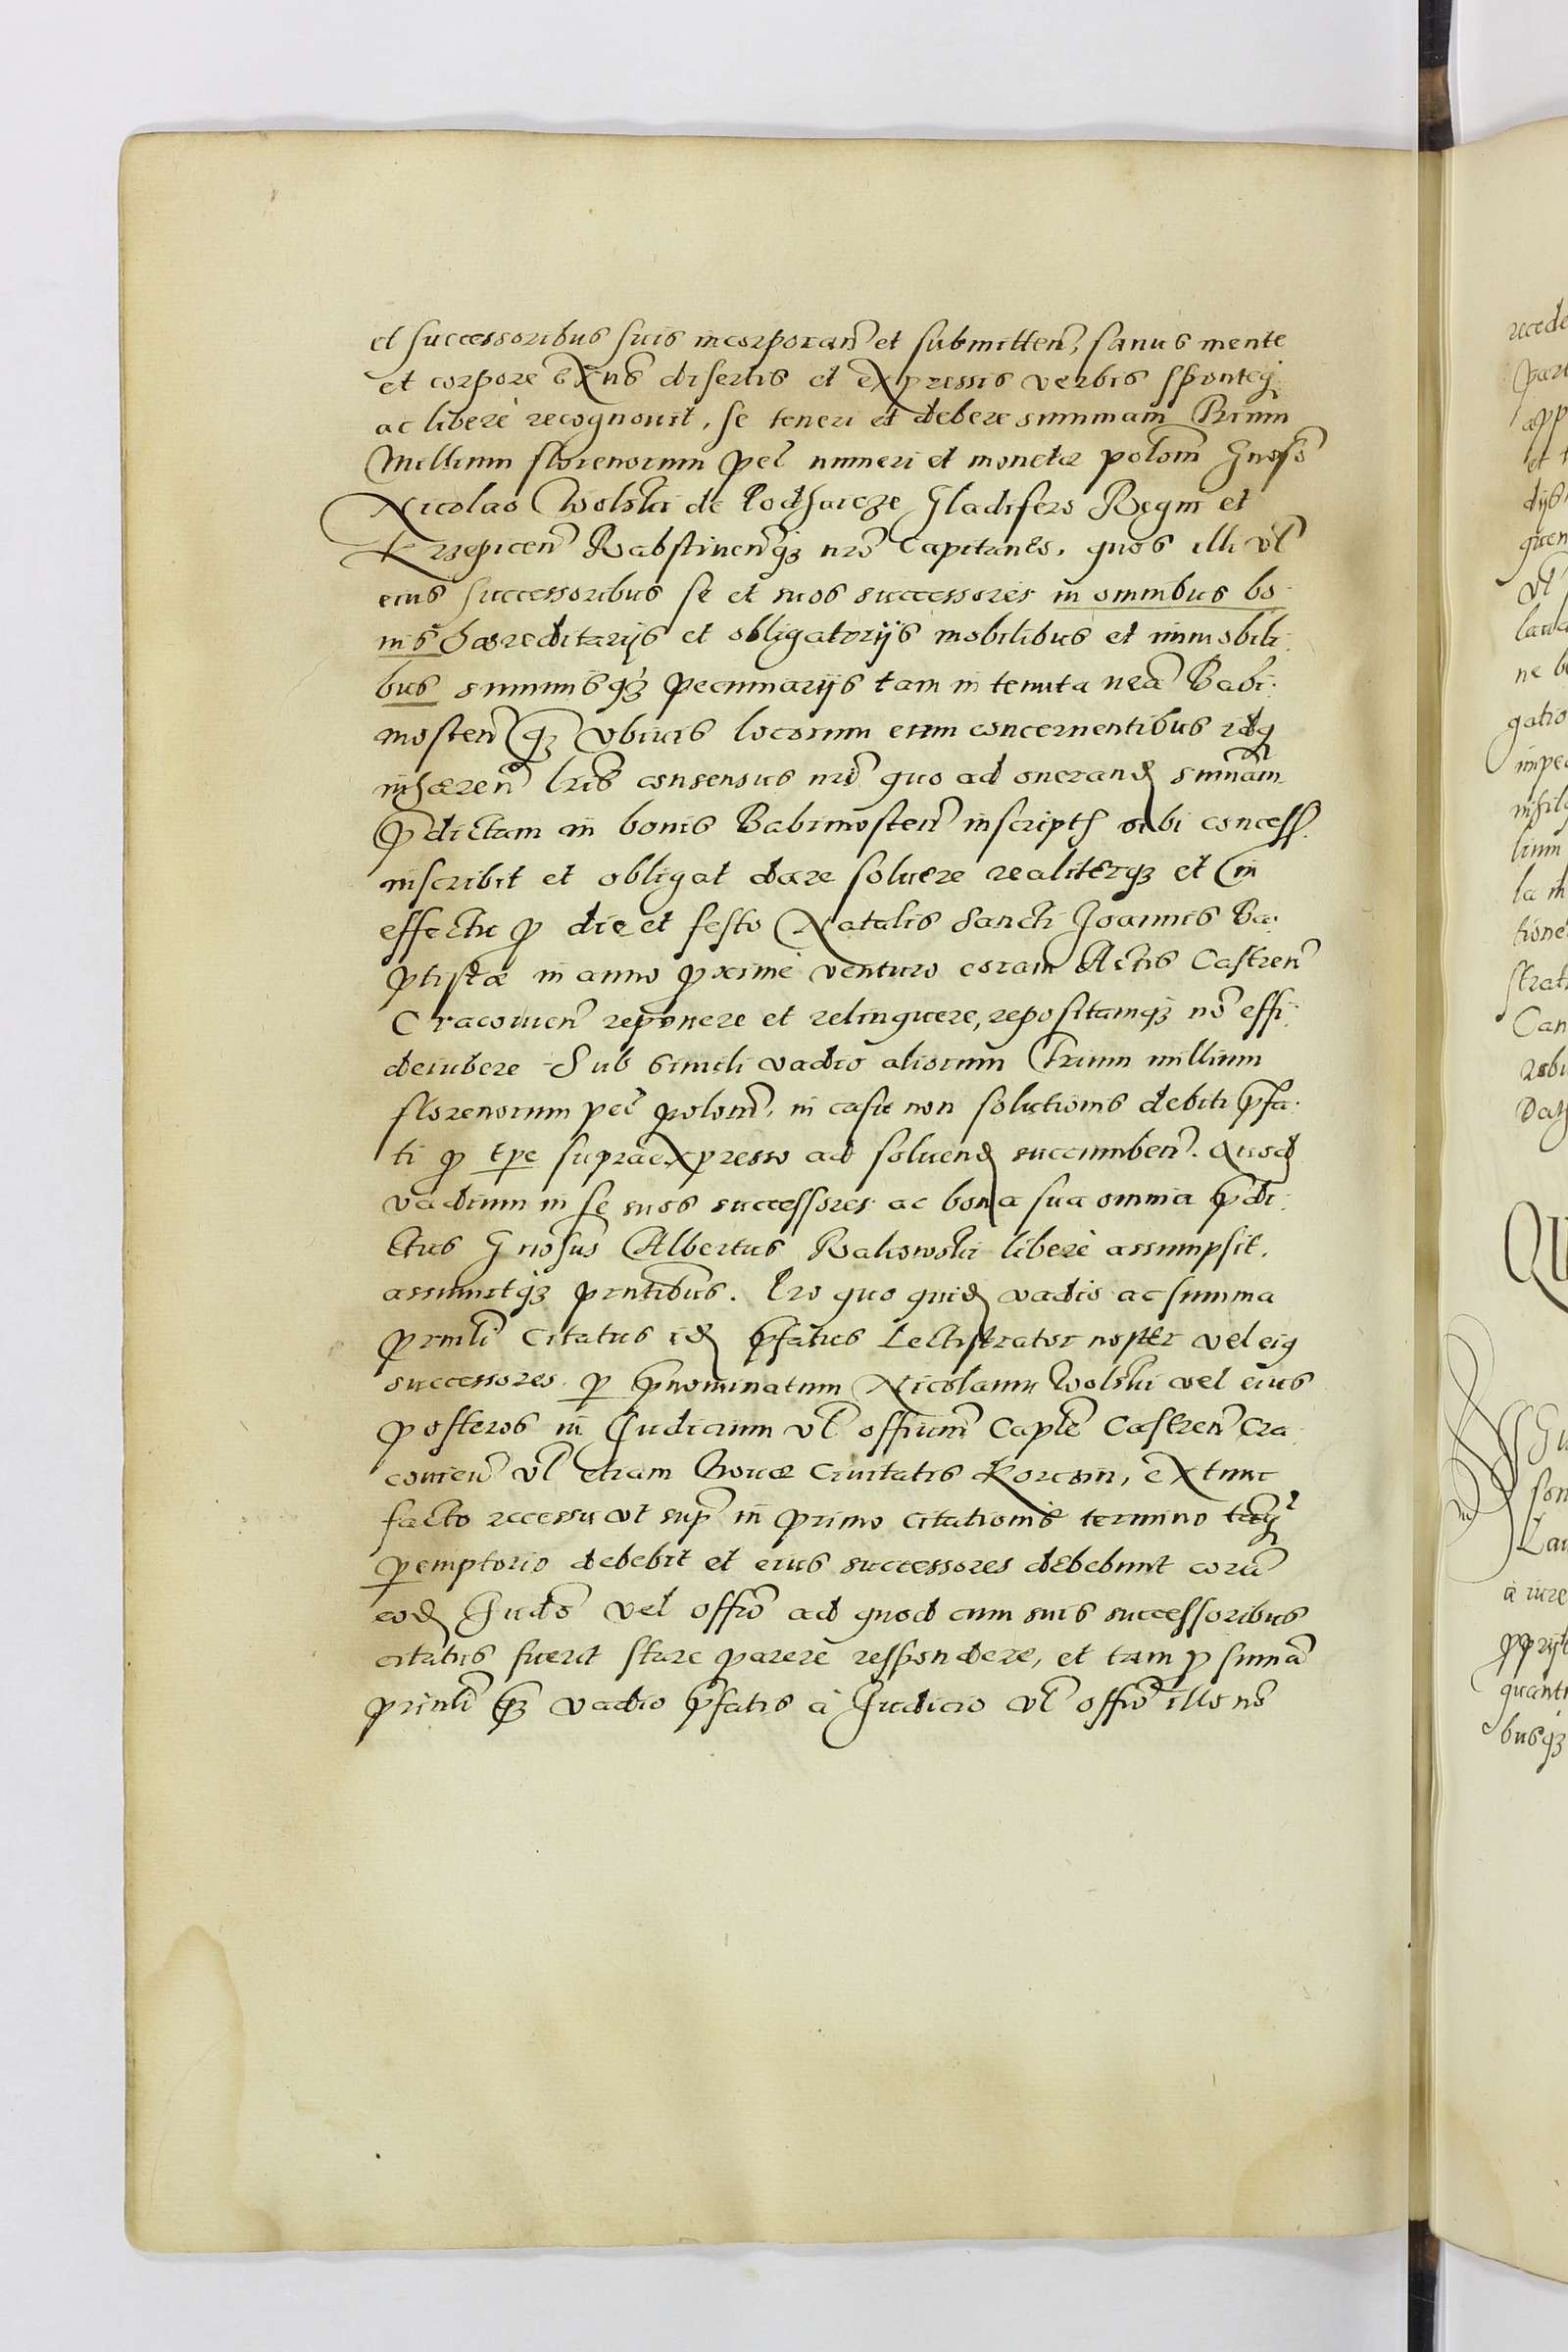 et successoribus suis incorporan̄ et submitten̄, sanus mente
et corpore ex̄ns disertis et expressis verbis sponteq̃
ac liberè recognouit, se teneri et debere summam Trium
Millium florenorum pec̄ numeri et monetæ polon̄ Gnoso
Nicolao Wolski de Podhaicze Gladifero Regni et
Krzepicen̄ Rabstinen̄q₃ nr̄o Capitaneo, quos illi vl̄
eius successoribus se et suos successores in omnibus bo-
nis hæreditarijs et obligatorijs mobilibus et immobili-
bus summisq₃ pecuniarijs tam in tenuta nr̄a Babi-
mosten̄ q₃ vbiuis locorum eum concernentibus idq̃
inhæren̄ lr̄is consensus nr̄i quo ad onerand̄ summam
p̄dictam in bonis Babimosten̄ inscript̄ sibi concess.
inscribit et obligat dare soluere realiterq₃ et in
effectu p̄ die et festo Natalis Sancti Joannis Ba-
ptistæ in anno pxime venturo coram Actis Castren̄
Cracouien̄ reponere et relinquere, repositamq₃ nō effi-
deiubere Sub simili vadio aliorum trium millium
florenorum pec̄ polon̄, in casu non solutionis debiti p̄fa-
ti p̄ tpe supraexpresso ad soluend̄ succumben̄. Quod
vadium in se suos successores ac bona sua omnia p̄di-
ctus Gnosus Albertus Rakowski liberè assumpsit,
assumitq₃ pn̄tibus. Pro quo quid̄ vadio ac summa
prn̄li citatus id̄ p̄fatus Lectistrator noster vel eiq
successores p̄ p̄nominatum Nicolaum Wolski vel eius
posteros in Judicium vl̄ offium̄ Caple Castren̄ Cra-
couien̄ vl̄ etiam Nouæ Ciuitatis Korcsin, ex tunc
facto recessu vt sup̄ in primo citationis termino
p̄emptorio debebit et eius successores debebunt corā
eod̄ Judo vel offio ad quod cum suis successoribus
citatus fuerit stare parere respondere, et tam p̄ summā
prin̄li q₃ vadio p̄fatis à Judicio vl̄ offio illo nō